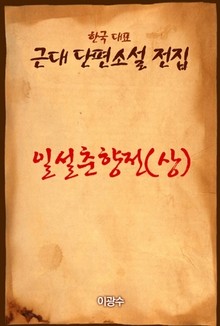 한국 대표
근대 단편소설 전집
일설춘향전(상)
이광수